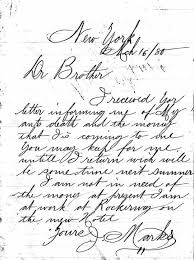 New York
Mch 16/80
Dr Brother
I received your
letter informing me of My
ants death and the money
that is coming to me
You may keep for me
untill I return wich will
be some time next summer
I am not in need of
the money at present I am
at work at Rockeway on
the new Hotel
Yours J. Marks